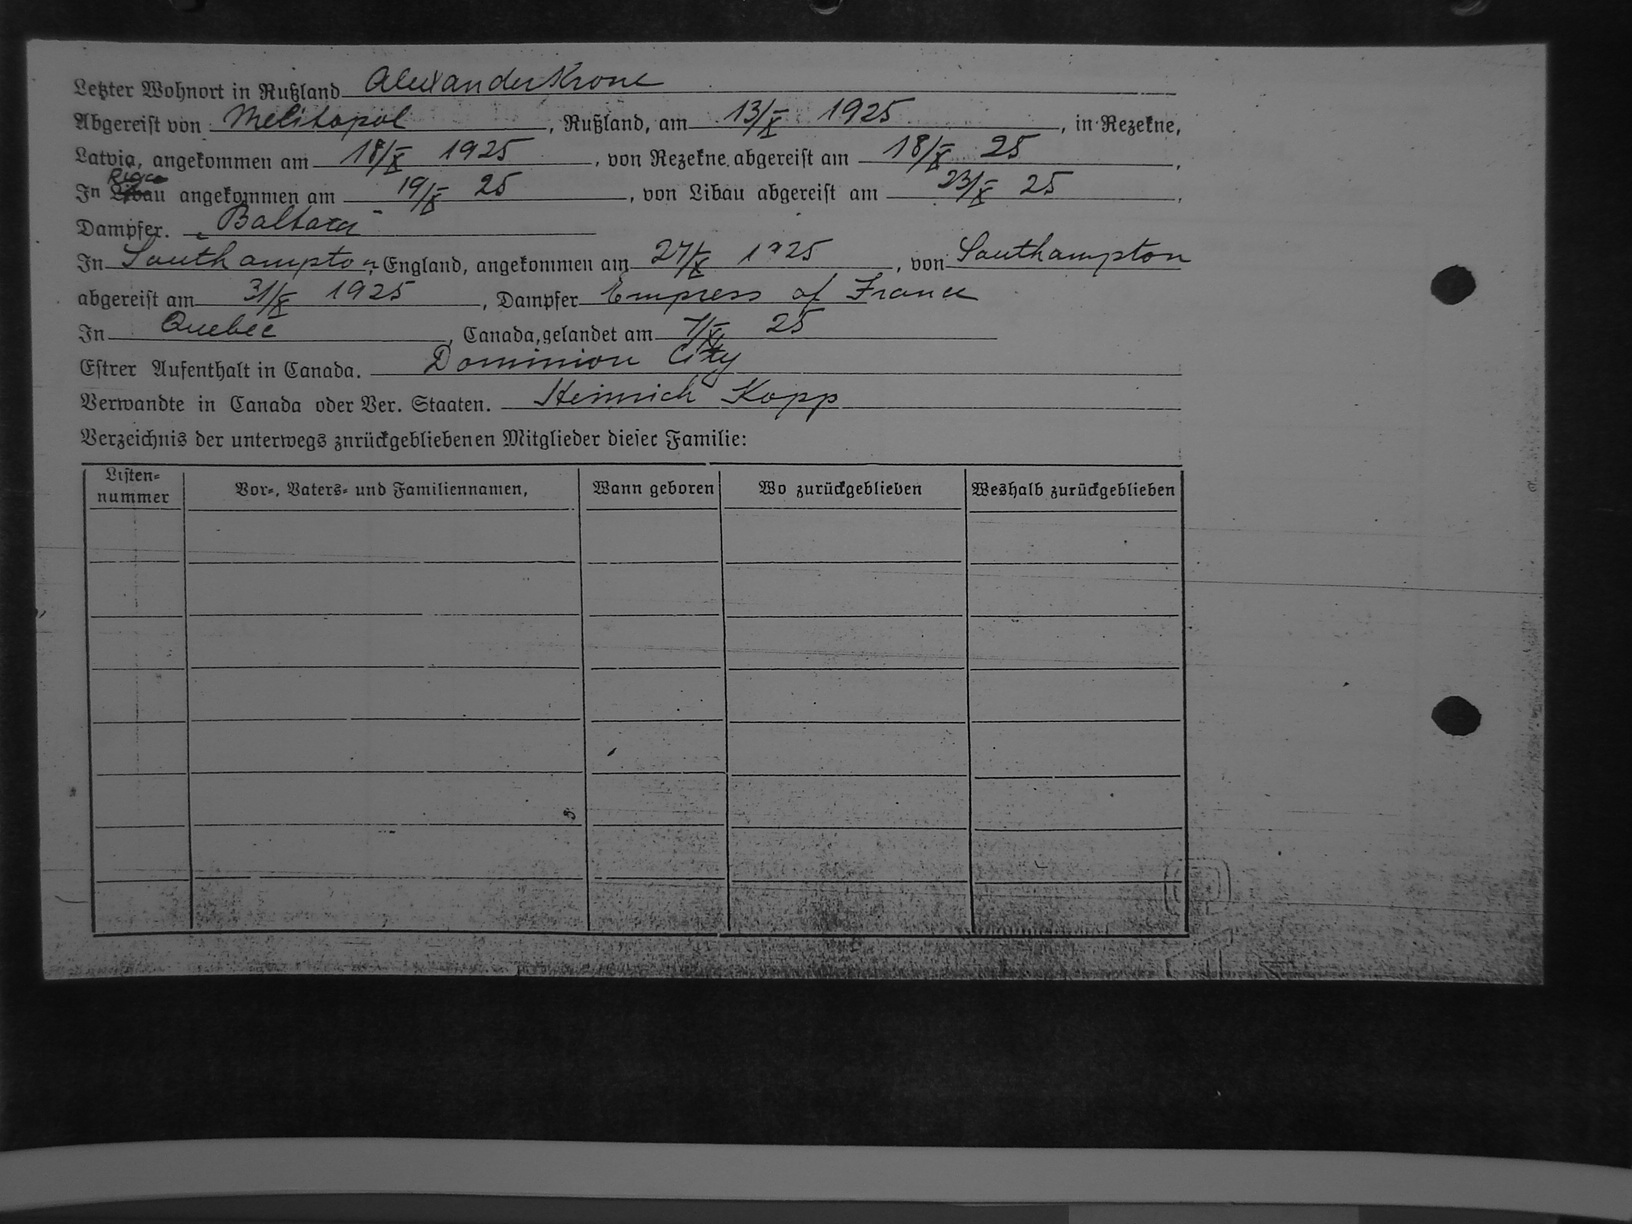 Letzter Wohnort in Rußland Alexanderkrone
Abgereist von Melitopol, Rußland, am 13/X 1925, in Rezekne,
Latvia, angekommen am 18/X 1925, von Rezekne abgereist am 18/X 25,
In Riga Libau angekommen am 19/X 25, von Libau abgereist am 23/X 25,
Dampfer. „Baltara"
In Southampton, England, angekommen am 27/X 1925, von Southampton
abgereist am 31/X 1925, Dampfer Empress of France
In Quebec, Canada, gelandet am 7/XI 25
Estrer Aufenthalt in Canada. Dominion City
Verwandte in Canada oder Ver. Staaten. Heinrich Kopp
Verzeichnis der unterwegs znrückgebliebenen Mitglieder dieser Familie:
Listen=
nummer Vor=, Vaters= und Familiennamen, Wann geboren Wo zurückgeblieben Weshalb zurückgeblieben